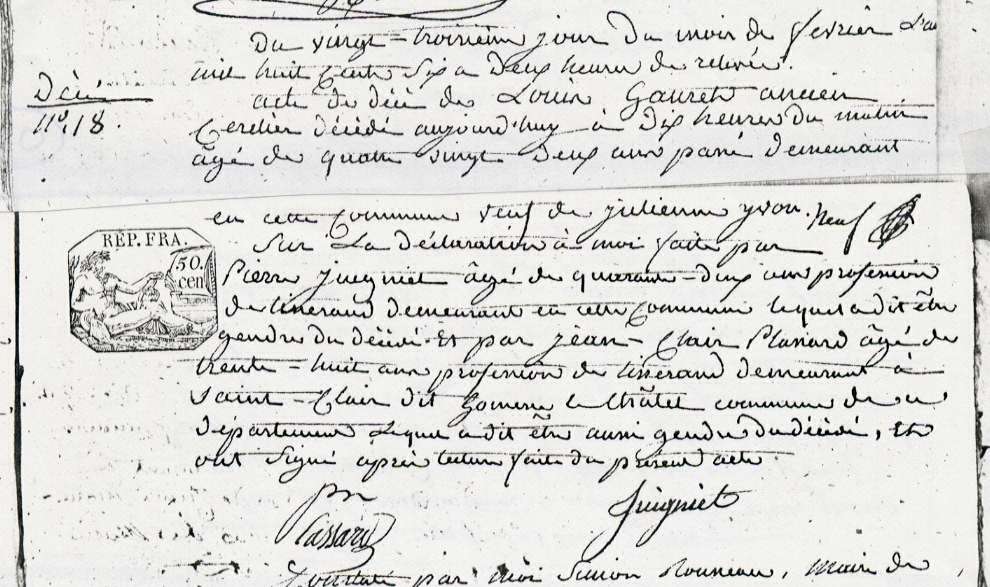 Du vingt-troisieme jour du mois de fevrier L'an
mil huit Cent Six a Deux heures de relevée.
Décès
acte de décès de Louis Gauret ancien
N.º 18.
Cerclier décédé aujourd'huy à Dix heures du matin
âgé de quatre vingt Deux ans passé demeurant
en cette Commune veuf de julienne yvon.
Sur La Déclaration à moi faite par
REP. FRA.
50.
cen
Pierre juigniet âgé de quarante-deux ans profession
de tisserand demeurant en cette Commune lequel a dit être
gendre du décédé. Et par jean-Clair âgé de
trente-huit ans profession de tisserand demeurant à
Saint-Clair dit commune de ce
Département Lequel a dit être aussi gendre du décédé, Et
ont signé après lecture faite du présent acte.
juigniet
Constaté par moi Simon Rousseau, Maire de